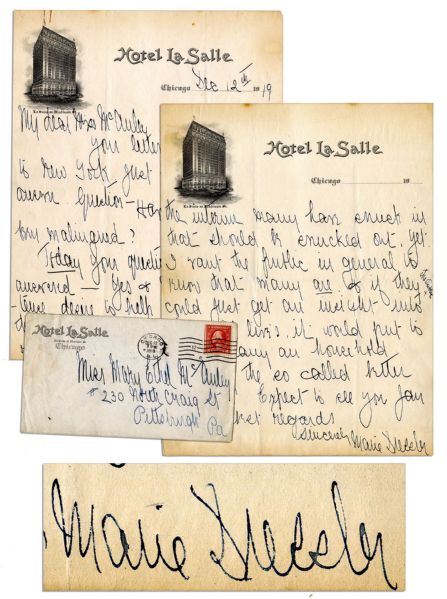 Hotel La Salle
Chicago Dec 12th 1919
My dear Miss McAuley
your letter
to New York just
answer question -
maligned?
Today your
answered - Yes
desire to help
Hotel La Salle
Chicago 19
the interim many have snuck in
that should be snucked out, yet
I want the public in general to
know that many are & if they
could just get an insight into
lives, it would put to
many an household
the so called better
Expect to see you Jan
regards
Sincerely
Marie Dressler
Hotel La Salle
Chicago
Miss Mary Ethel McAuley
#230 North Craig St
Pittsburgh
Pa
Marie Dressler